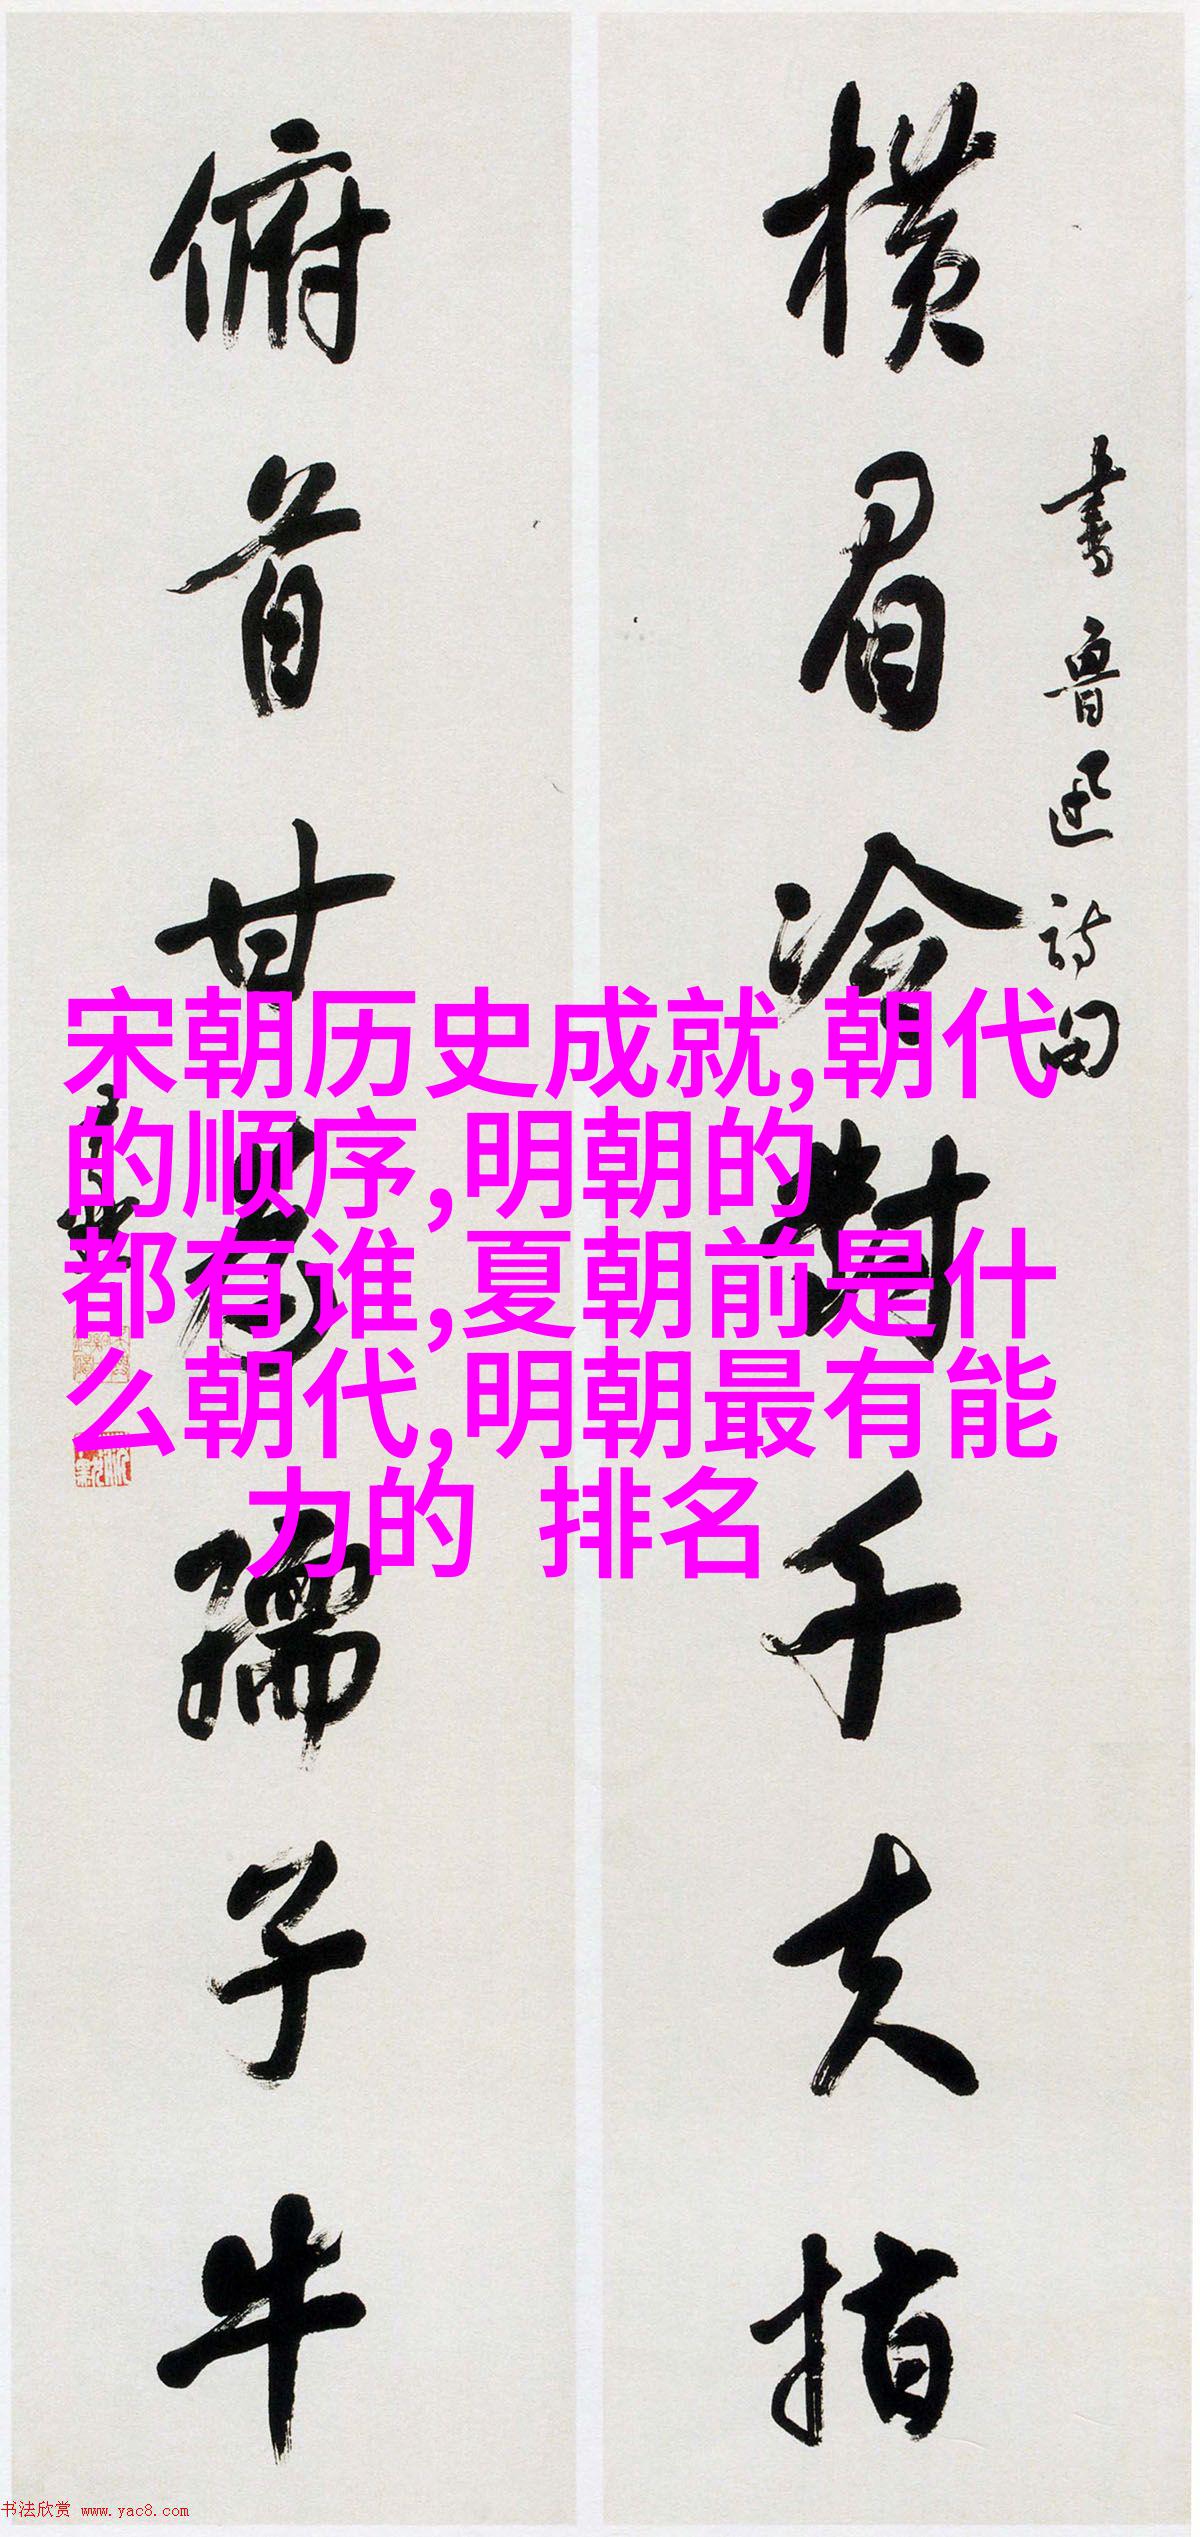 横眉冷對千夫指
書魯迅詩句
俯首甘為孺子牛
宋朝历史成就,朝代
的顺序,明朝的
都有谁,夏朝前是什
么朝代,明朝最有能
力的 排名
书法欣赏 www.yac8.com